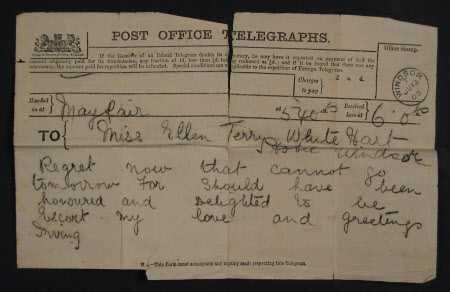 POST OFFICE TELEGRAPHS.
If the Receiver of an Inland Telegram doubts its accuracy, he may have it repeated on payment of half the
amount originally paid for its transmission, any fraction of 1d. less than ½d. being reckoned as ½d.; and if it be found that there was any
inaccuracy, the amount paid for repetition will be refunded. Special conditions are applicable to the repetition of Foreign Telegrams.
Office Stamp.
WINDSOR
Charges
to pay
Handed
in at
Mayfair
at 5 40
Received
here at 6.0
TO Miss Ellen Terry White Hart
Hotel Windsor
Regret now that cannot go
tomorrow for should have been
honoured and delighted to be
Escort my love and greetings
Irving
N.B.—This Form must accompany any inquiry made respecting this Telegram.